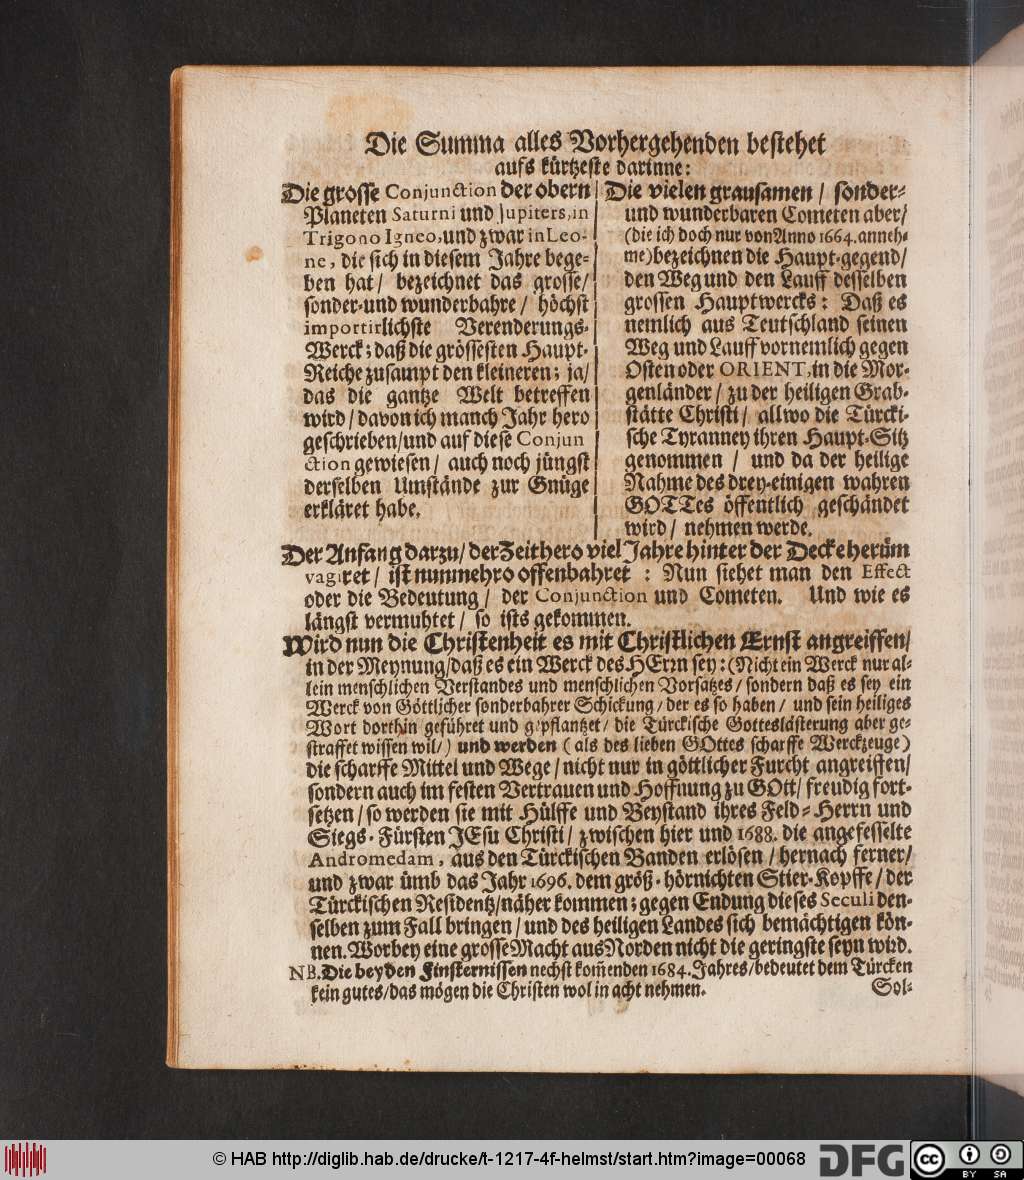 Die Summa alles Vorhergehenden bestehet
aufs kürtzeste darinne:
Die grosse Conjunction der obern
Planeten Saturni und Jupiters, in
Trigono Igneo, und zwar in Leo-
ne, die sich in diesem Jahre bege-
ben hat / bezeichnet das grosse /
sonder- und wunderbahre / höchst
importirlichste Verenderungs-
Werck; daß die grössesten Haupt-
Reiche zusampt den kleineren; ja /
das die gantze Welt betreffen
wird / davon ich manch Jahr hero
geschrieben / und auf diese Conjun
ction gewiesen / auch noch jüngst
derselben Umstände zur Gnüge
erkläret habe.
Die vielen grausamen / sonder-
und wunderbaren Cometen aber /
(die ich doch nur von Anno 1664. anneh-
me) bezeichnen die Haupt-gegend /
den Weg und den Lauff desselben
grossen Hauptwercks: Daß es
nemlich aus Teutschland seinen
Weg und Lauff vornemlich gegen
Osten oder ORIENT, in die Mor-
genländer / zu der heiligen Grab-
stätte Christi / allwo die Türcki-
sche Tyranney ihren Haupt-Sitz
genommen / und da der heilige
Nahme des drey-einigen wahren
GOTTes öffentlich geschändet
wird / nehmen werde.
Der Anfang darzu / der Zeithero viel Jahre hinter der Decke herüm
vagiret / ist nunmehro offenbahret : Nun siehet man den Effect
oder die Bedeutung / der Conjunction und Cometen. Und wie es
längst vermuhtet / so ists gekommen.
Wird nun die Christenheit es mit Christlichen Ernst angreiffen /
in der Meynung / daß es ein Werck des HErrn sey: (Nicht ein Werck nur al-
lein menschlichen Verstandes und menschlichen Vorsatzes / sondern daß es sey ein
Werck von Göttlicher sonderbahrer Schickung / der es so haben / und sein heiliges
Wort dorthin geführet und gepflantzet / die Türckische Gotteslästerung aber ge-
straffet wissen wil /) und werden ( als des lieben GOttes scharffe Werckzeuge )
die scharffe Mittel und Wege / nicht nur in göttlicher Furcht angreiffen /
sondern auch im festen Vertrauen und Hoffnung zu GOtt / freudig fort-
setzen / so werden sie mit Hülffe und Beystand ihres Feld-Herrn und
Siegs-Fürsten JEsu Christi / zwischen hier und 1688. die angefesselte
Andromedam, aus den Türckischen Banden erlösen / hernach ferner /
und zwar ümb das Jahr 1696. dem größ-hörnichten Stier-Kopffe / der
Türckischen Residentz / näher kommen; gegen Endung dieses Seculi den-
selben zum Fall bringen / und des heiligen Landes sich bemächtigen kön-
nen. Worbey eine grosse Macht aus Norden nicht die geringste seyn wird.
NB. Die beyden Finsternissen nechst kom̄enden 1684. Jahres / bedeutet dem Türcken
kein gutes / das mögen die Christen wol in acht nehmen.
Sol-
© HAB http://diglib.hab.de/drucke/t-1217-4f-helmst/start.htm?image=00068
DFG
cc BY SA